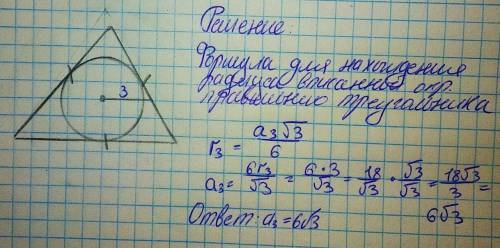 3
Решение:
Формула для нахождения
радиуса вписанной окр.
правильного треугольника
r₃ = a₃√3/6
a₃ = 6r₃/√3 = 6·3/√3 = 18/√3 · √3/√3 = 18√3/3 =
6√3
Ответ: a₃ = 6√3